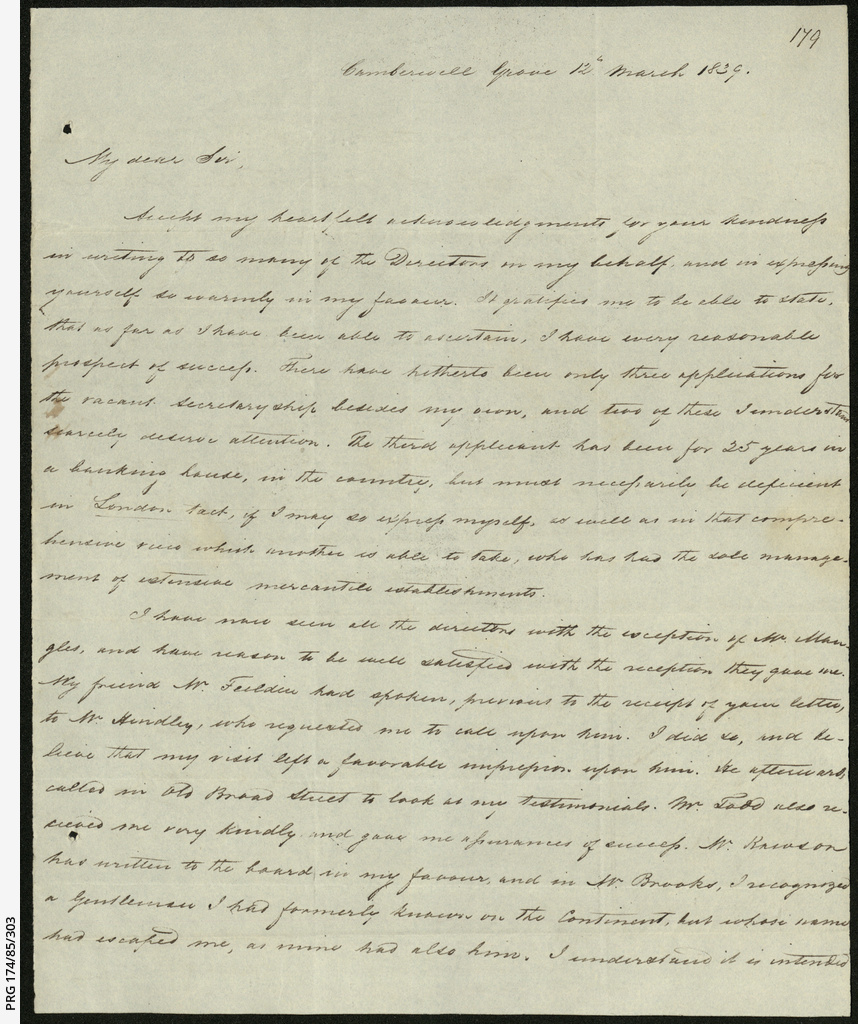 179
Camberwell Grove 12th March 1839.
My dear Sir,
Accept my heartfelt acknowledgments for your kindness
in writing to so many of the Directors on my behalf, and in expressing
yourself so warmly in my favour. It gratifies me to be able to state,
that as far as I have been able to ascertain, I have every reasonable
prospect of success. There have hitherto been only three applications for
the vacant secretaryship besides my own, and two of these I understand
scarcely deserve attention. The third applicant has been for 25 years in
a banking house, in the country, but must necessarily be deficient
in London tact, if I may so express myself, as well as in that compre-
hensive view which another is able to take, who has had the sole manage-
ment of extensive mercantile establishments.
I have now seen all the directors with the exception of Mr. Man-
gles, and have reason to be well satisfied with the reception they gave me.
My friend Mr. Feilden had spoken, previous to the receipt of your letter,
to Mr. Hindley, who requested me to call upon him. I did so, and be-
lieve that my visit left a favorable impression upon him. He afterwards
called in Old Broad Street to look at my testimonials. Mr. Todd also re-
ceived me very kindly and gave me assurances of success. Mr. Rawson
has written to the board in my favour, and in Mr. Brooks, I recognized
a Gentleman I had formerly known on the Continent, but whose name
had escaped me, as mine had also him. I understand it is intended
PRG 174/85/303